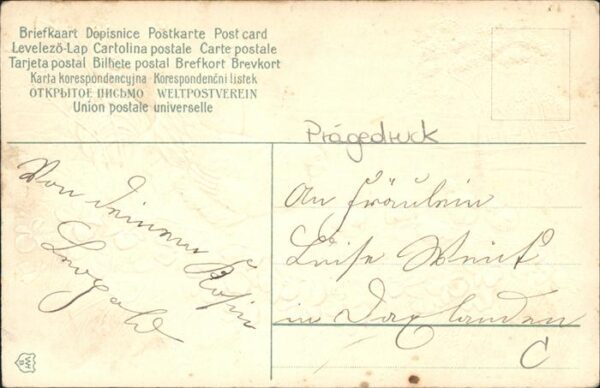 Briefkaart Dopisnice Postkarte Post card
Levelező-Lap Cartolina postale Carte postale
Tarjeta postal Bilhete postal Brefkort Brevkort
Karta korespondencyjna Korespondenční lístek
ОТКРЫТОЕ ПИСЬМО WELTPOSTVEREIN
Union postale universelle
Prägedruck
Von deinem
Leopold
An Fräulein
Luise
in Daxlanden
C